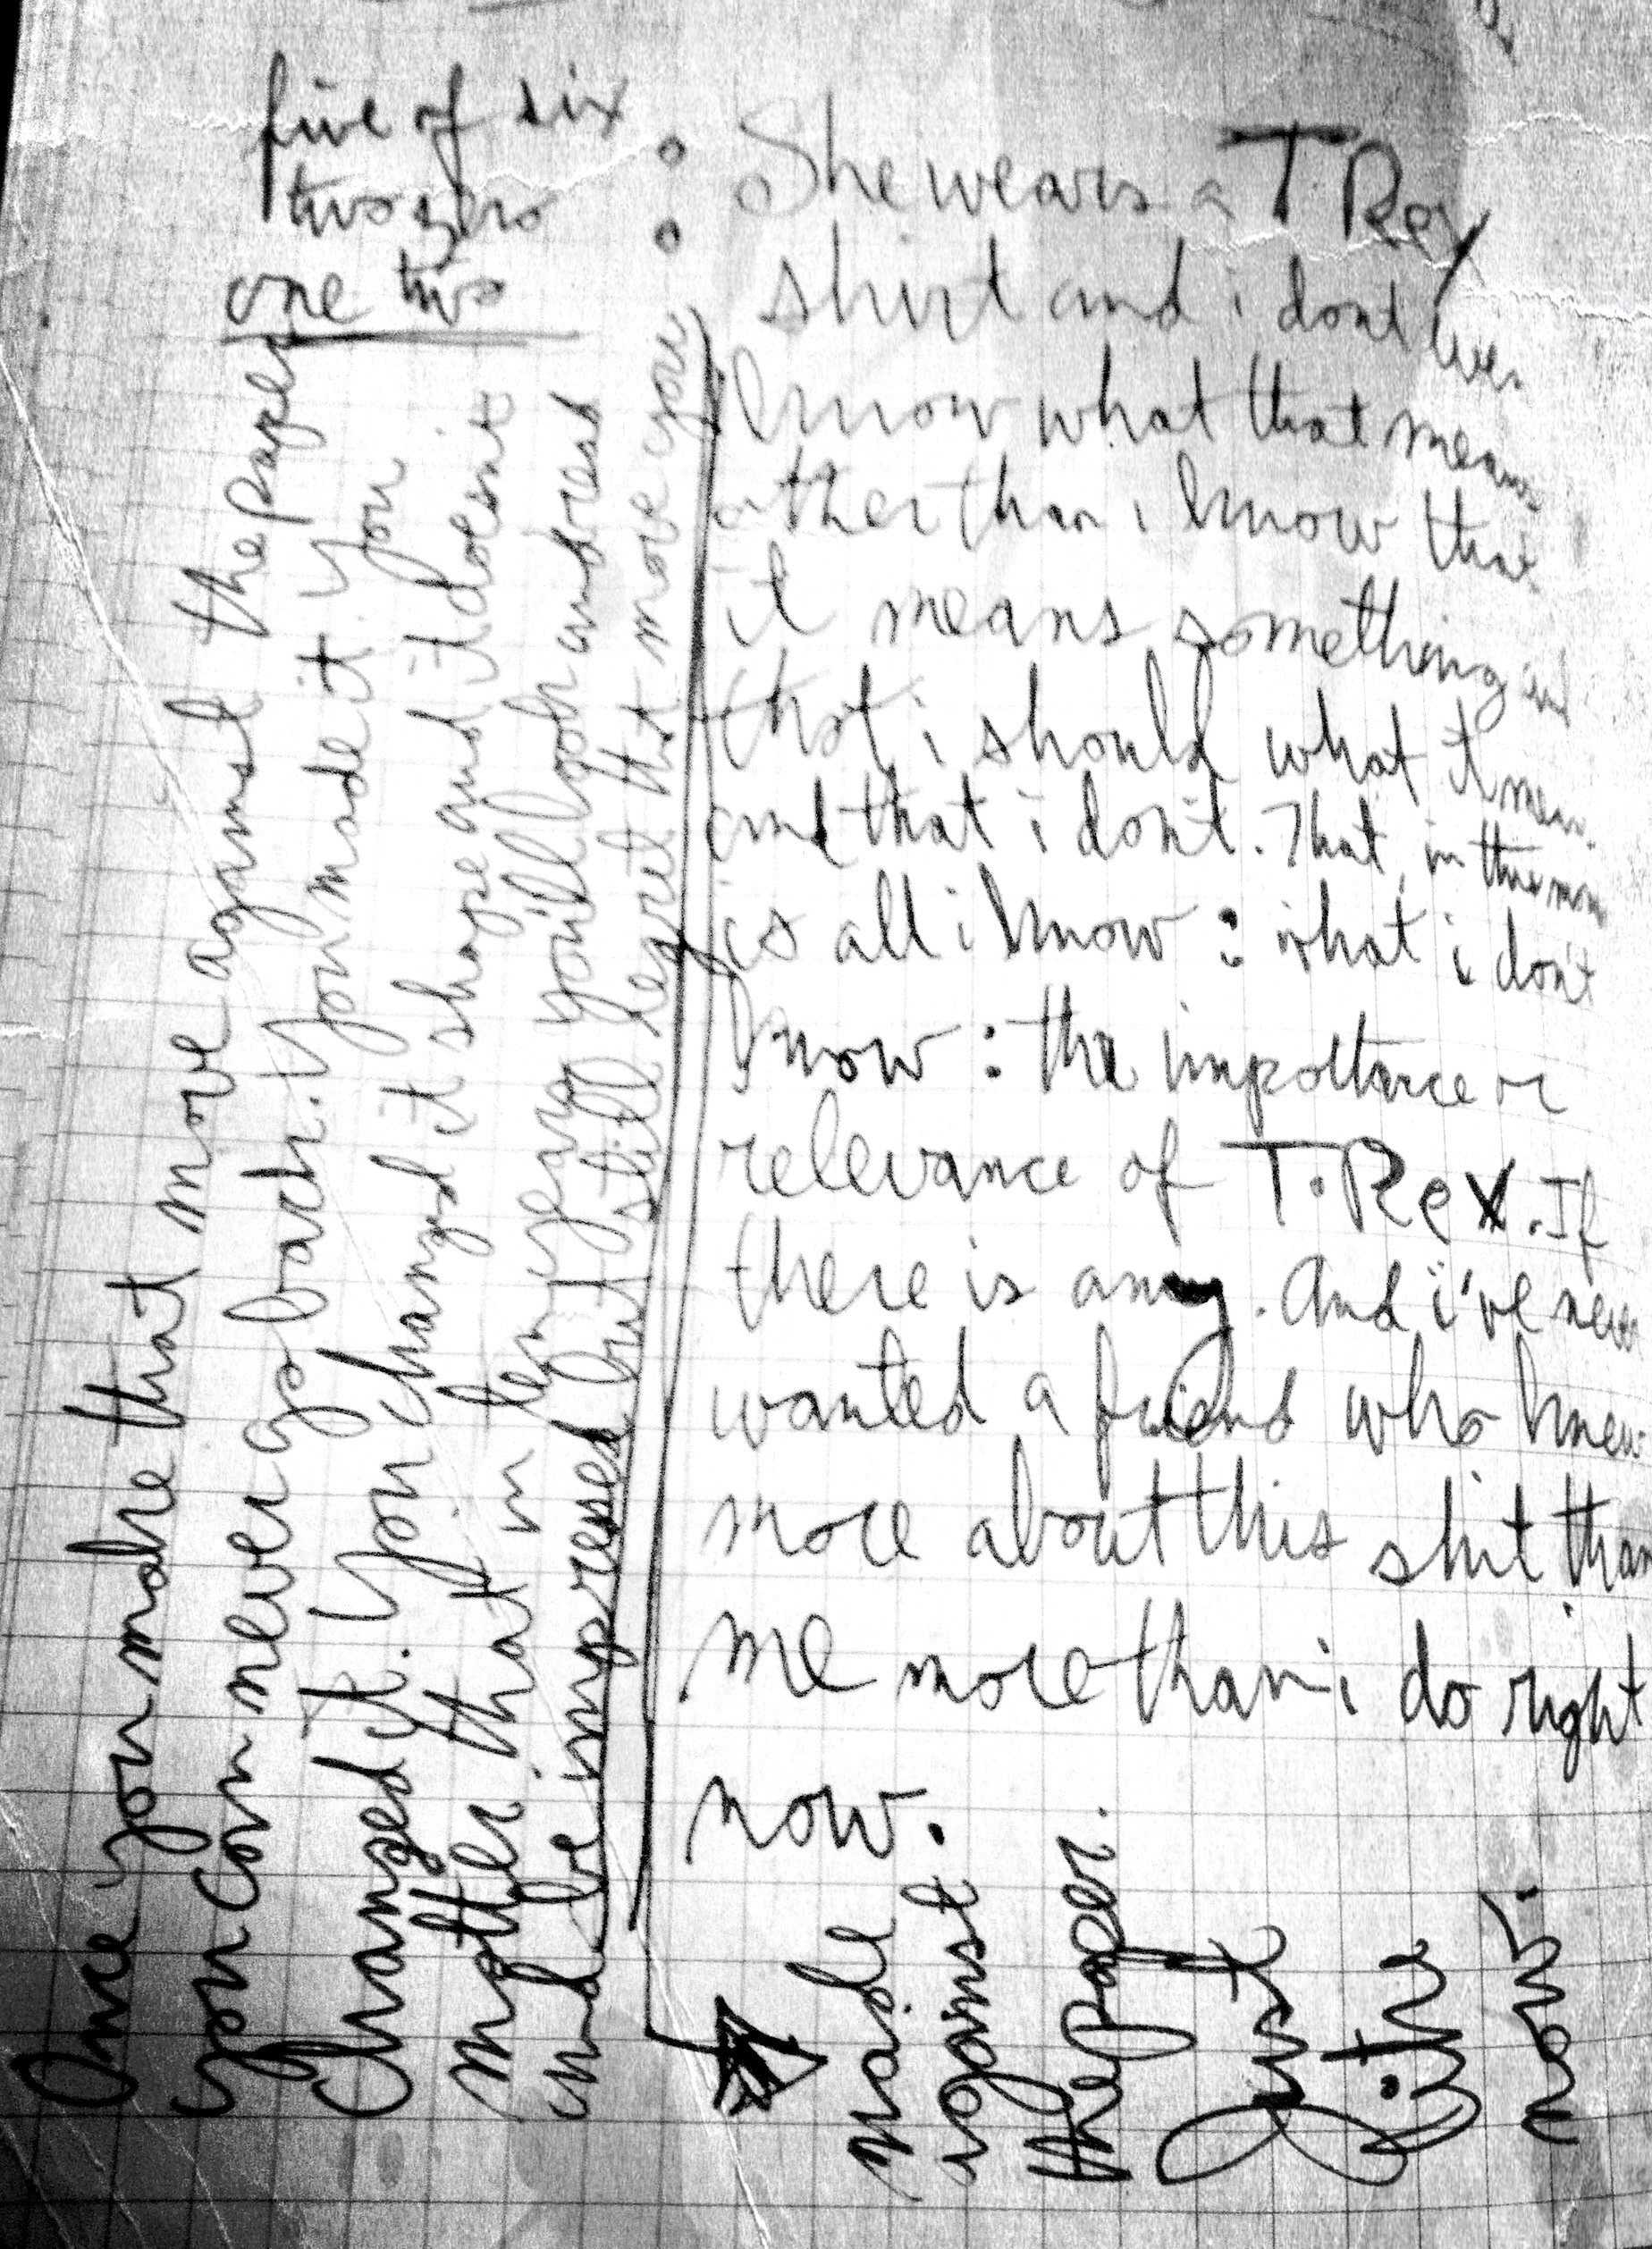 five of six
two zero
one two
She wears a T. Rex
shirt and i dont even
know what that means
other than i know that
it means something and
that i should what it mean
and that i don't. That in this mom
is all i know : what i don't
know : the importance or
relevance of T. Rex. If
there is any. And i've never
wanted a friend who knew
more about this shit than
me more than i do right
now.
Once you make that move against the paper
you can never go back. You made it. You
changed it. You changed it shape and it doesnt
matter that in ten years you'll look and read
and be impressed but still regret that move you
made
against
the paper.
Just
it's
now.